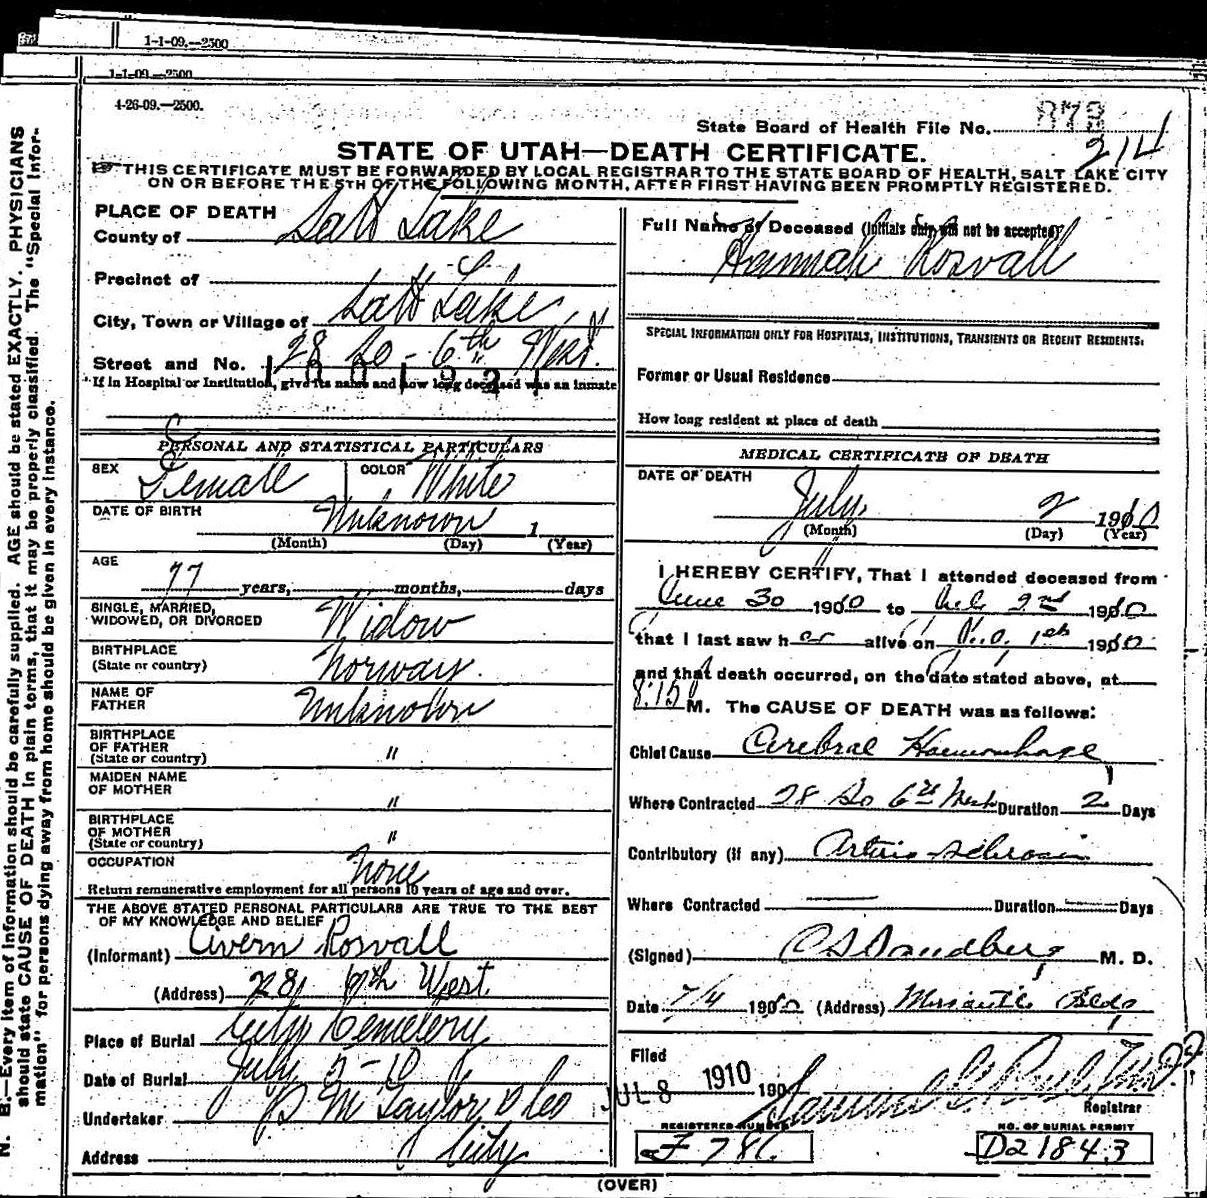 1-1-09.—2500
1-1-09.—2500
4-26-09.—2500.
State Board of Health File No. 873
214
STATE OF UTAH—DEATH CERTIFICATE.
THIS CERTIFICATE MUST BE FORWARDED BY LOCAL REGISTRAR TO THE STATE BOARD OF HEALTH, SALT LAKE CITY
ON OR BEFORE THE 5TH OF THE FOLLOWING MONTH, AFTER FIRST HAVING BEEN PROMPTLY REGISTERED.
PLACE OF DEATH
County of Salt Lake
Precinct of
City, Town or Village of Salt Lake
Street and No. 28 So - 6th West.
If in Hospital or Institution, give its name and how long deceased was an inmate
PERSONAL AND STATISTICAL PARTICULARS
SEX Female COLOR White
DATE OF BIRTH Unknown 1
(Month) (Day) (Year)
AGE
77 years, months, days
SINGLE, MARRIED,
WIDOWED, OR DIVORCED Widow
BIRTHPLACE
(State or country) Norway.
NAME OF
FATHER Unknown
BIRTHPLACE
OF FATHER
(State or country) "
MAIDEN NAME
OF MOTHER "
BIRTHPLACE
OF MOTHER
(State or country) "
OCCUPATION None
Return remunerative employment for all persons 10 years of age and over.
THE ABOVE STATED PERSONAL PARTICULARS ARE TRUE TO THE BEST
OF MY KNOWLEDGE AND BELIEF
(Informant) Rosvall
(Address) 28 West.
Place of Burial City Cemetery
Date of Burial July 5-10
Undertaker S M Taylor & Co
Address City
Full Name of Deceased (Initials only will not be accepted)
Hannah Rosvall
SPECIAL INFORMATION ONLY FOR HOSPITALS, INSTITUTIONS, TRANSIENTS OR RECENT RESIDENTS.
Former or Usual Residence
How long resident at place of death
MEDICAL CERTIFICATE OF DEATH
DATE OF DEATH
July 2 1910
(Month) (Day) (Year)
I HEREBY CERTIFY, That I attended deceased from
June 30 1910 to July 2nd 1910
that I last saw her alive on 1st 1910
and that death occurred, on the date stated above, at
8:15 M. The CAUSE OF DEATH was as follows:
Chief Cause Cerebral Haemorrhage
Where Contracted 28 So 6th West Duration 2 Days
Contributory (if any) Arterio-sclerosis
Where Contracted Duration Days
(Signed) M. D.
Date 7/4 1910 (Address) Mercantile Bldg
Filed
JUL 8 1910 190
Registrar
REGISTERED NUMBER NO. OF BURIAL PERMIT
F 781. D21843
(OVER)
N. B.—Every item of information should be carefully supplied. AGE should be stated EXACTLY. PHYSICIANS
should state CAUSE OF DEATH in plain terms, that it may be properly classified. The "Special Infor-
mation" for persons dying away from home should be given in every instance.